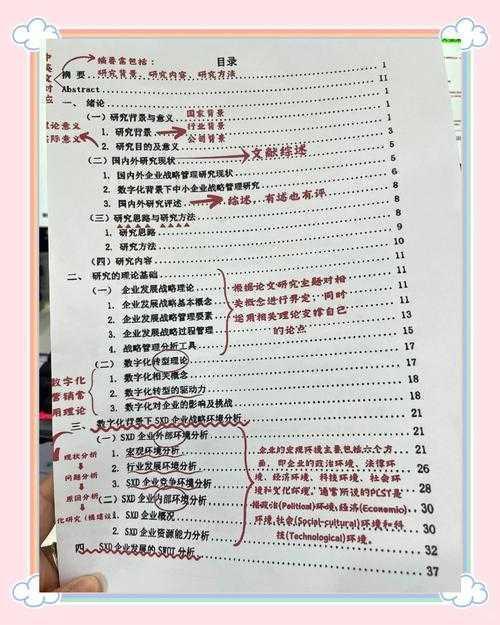 目录
摘要需包括：
摘 要 研究背景、研究内容、研究方法 1
Abstract 11
一、 绪论 1
（一）研究背景与意义 国家背景 1
1. 研究背景 行业背景 1
公司背景
2. 研究目的及意义 3
（二）国内外研究现状 文献综述 5
1. 国内外企业战略管理研究现状 5
2. 数字化背景下中小企业战略管理研究 6
3. 国内外研究评述 综述，有述也有评 8
（三）研究思路与研究方法 8
1. 研究思路 8
2. 研究方法 9
（四）研究内容 10
二、 研究的理论基础 11
（一） 企业发展战略理论 11
1. 企业发展战略基本概念 11
2. 企业发展战略管理要素 11
3. 企业发展战略过程管理 13
4. 战略管理分析工具 15
根据论文研究主题对相
关概念进行界定，同时
运用相关理论支撑自己
的论点
（二） 数字化转型理论 17
1. 数字化相关概念 17
2. 数字化转型的驱动力 18
3. 数字化对企业的影响及挑战 18
数字化
营销常
用理论
三、 数字化背景下 SXD 企业战略环境分析 21
（一）SXD 企业外部环境分析 21
1. 宏观环境分析 21
2. 行业发展环境分析 26
3. SXD 企业竞争环境分析 28
（二）SXD 企业内部环境分析 30
1. SXD 企业概况 30
2. SXD 企业资源能力分析 32
四 SXD 企业发展的 SWOT 分析 37
现状分析
问题分析
原因分析
企业的宏观环境主要包括六个方
面，即企业的政治环境、法律环
境、经济环境、科技环境、社会环
境和文化环境。通常所说的PCST是
指政治(Political)环境、经济(Economic)
环境、社会(Social-cultural)环境和科
技(Technological)环境。